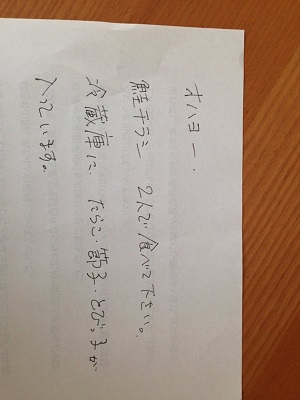 オハヨー.
鮭チラシ 2人で食べて下さい。
冷蔵庫に、たらこ・節子・とびっ子が
入っています。